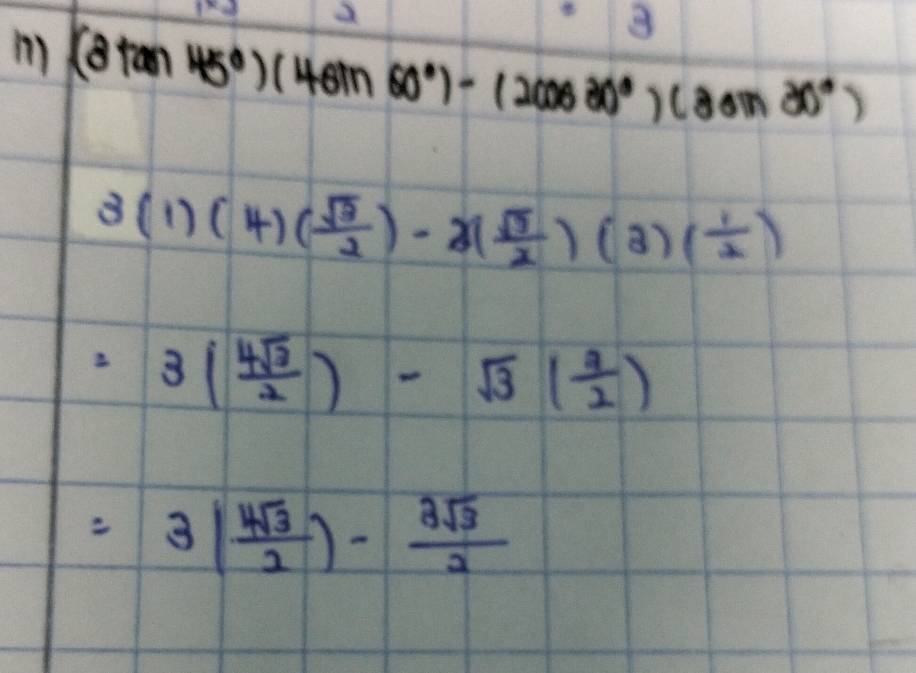 2 = 3
11) (3 tan 45°)(4 sin 60°) - (2 cos 30°)(3 sin 30°)
3(1)(4)(√3/2) - 2(√3/2)(3)(1/2)
= 3(4√3/2) - √3(3/2)
= 3(4√3/2) - 3√3/2